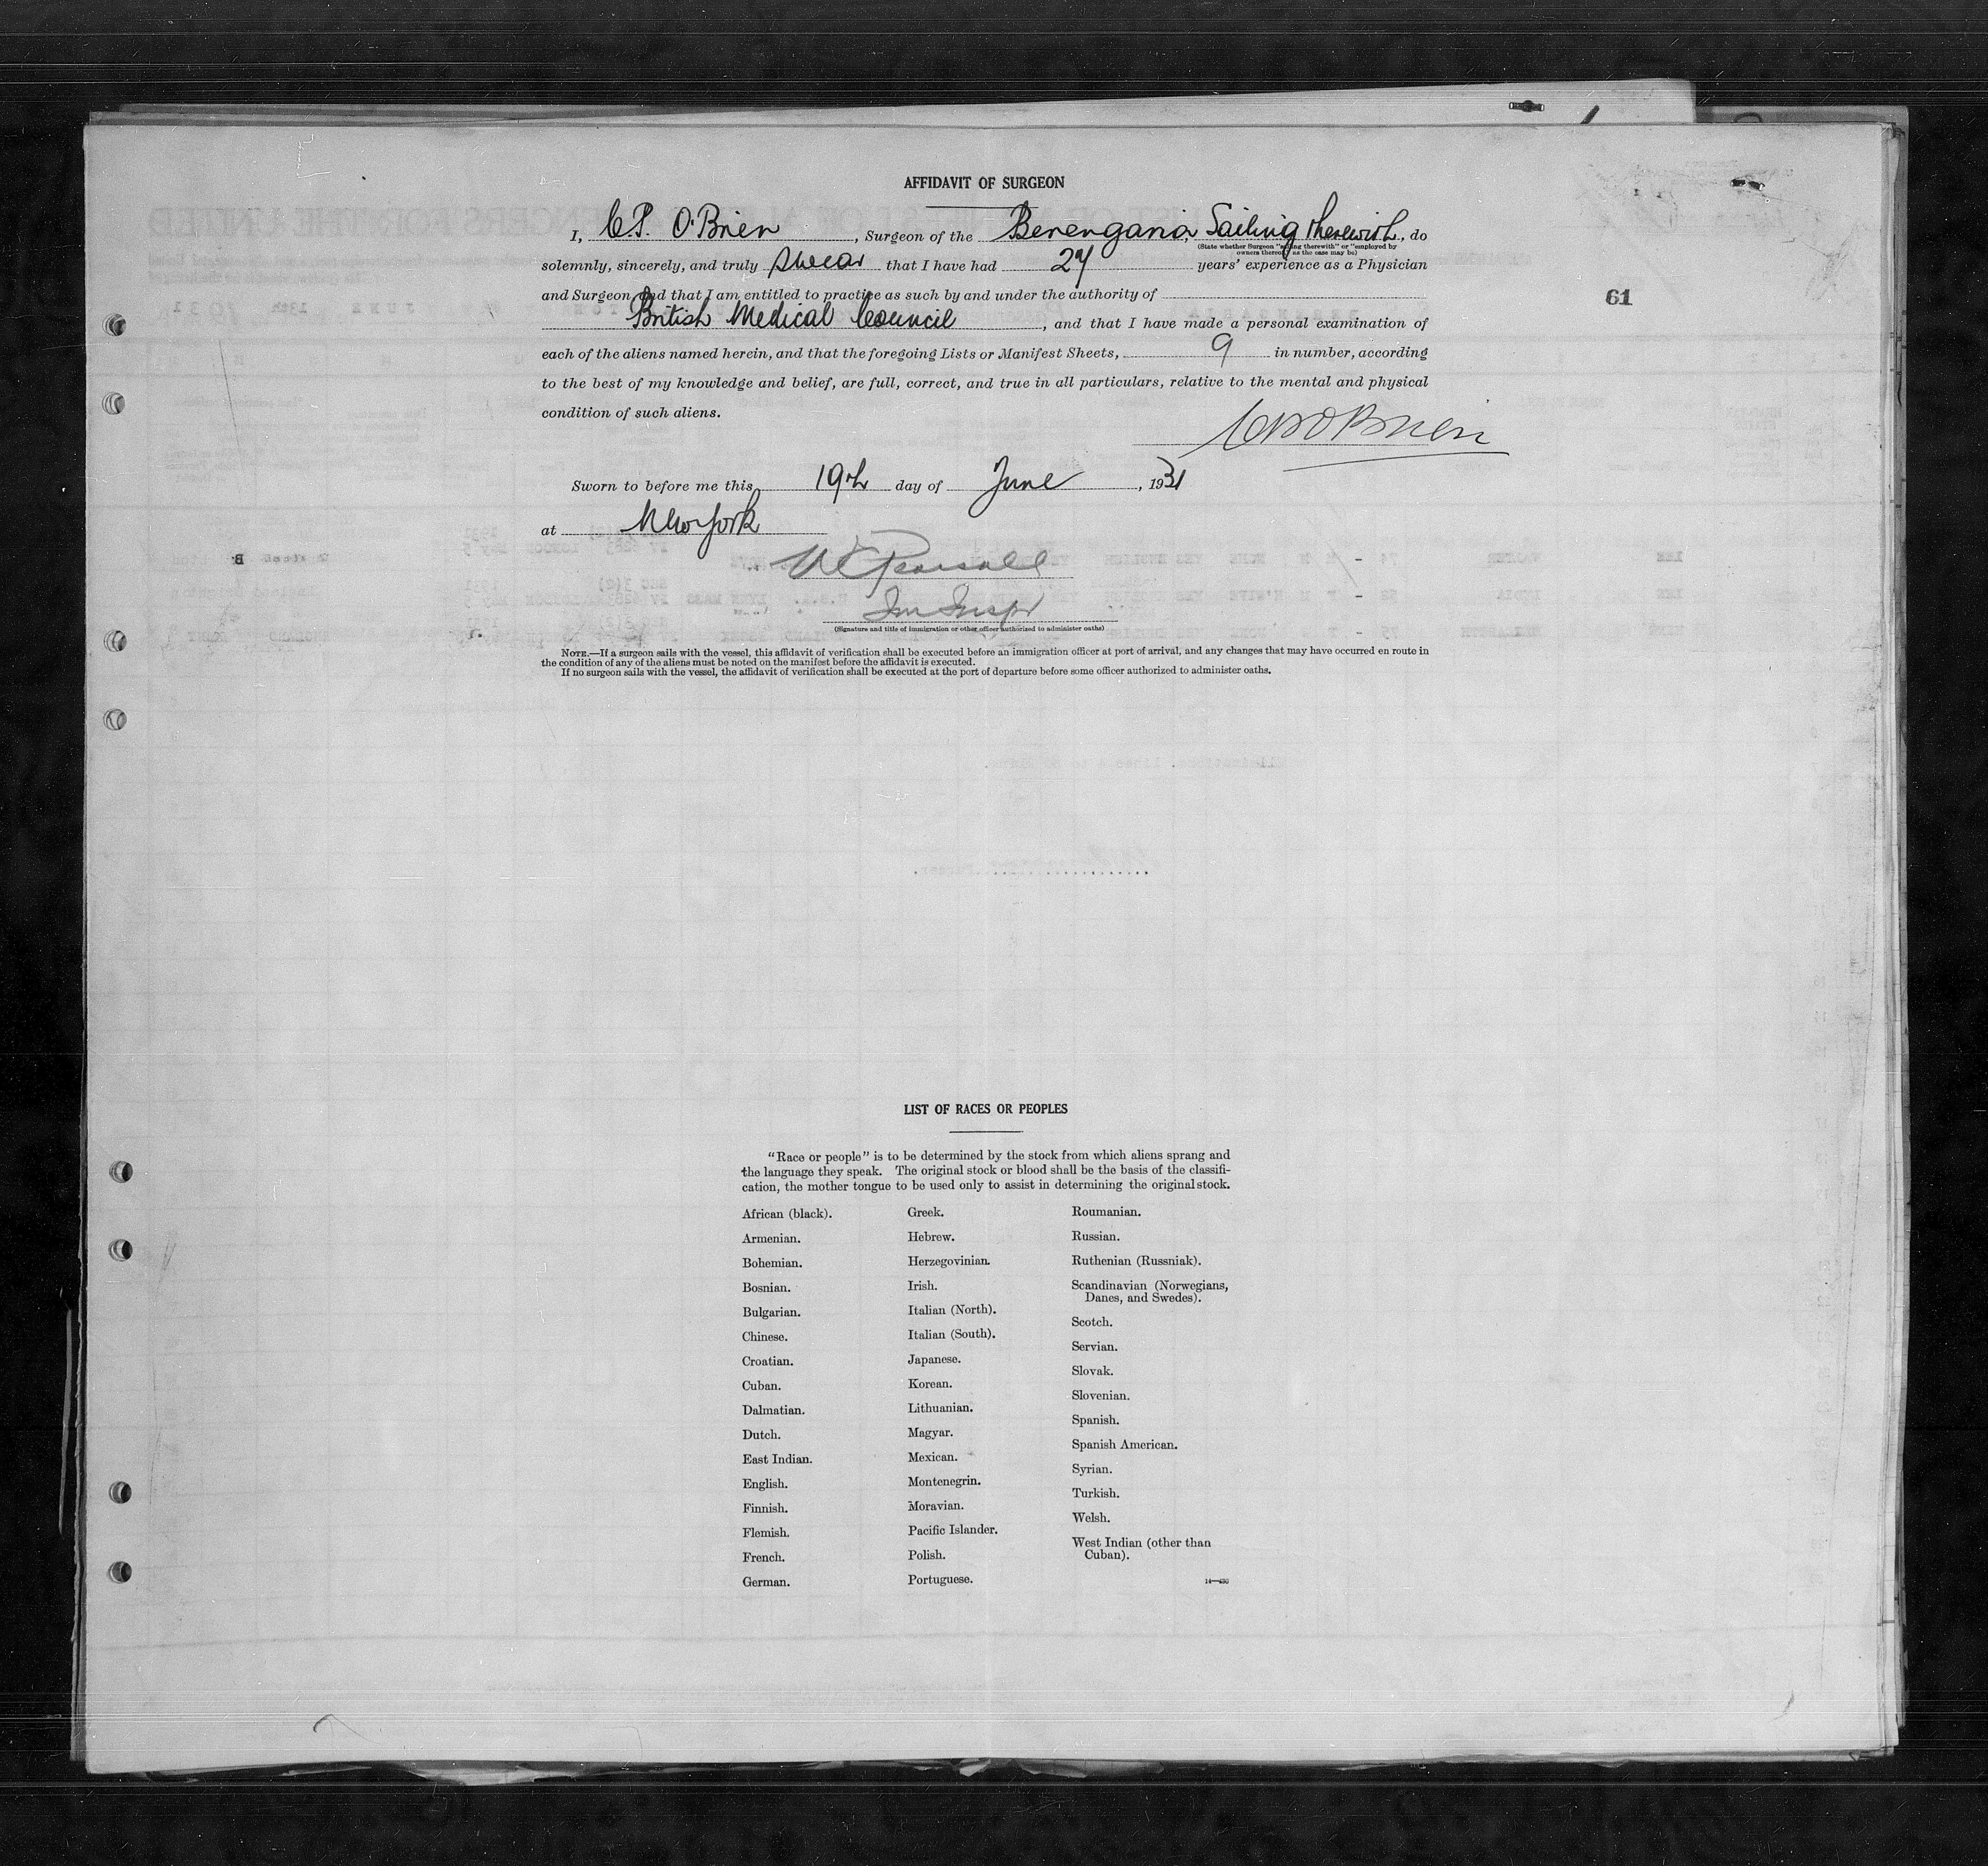 AFFIDAVIT OF SURGEON
I, C.P. O'Brien, Surgeon of the Berengaria, Sailing therewith, do
(State whether Surgeon "sailing therewith" or "employed by
owners thereof," as the case may be)
solemnly, sincerely, and truly swear that I have had 27 years' experience as a Physician
and Surgeon and that I am entitled to practice as such by and under the authority of
British Medical Council, and that I have made a personal examination of
61
each of the aliens named herein, and that the foregoing Lists or Manifest Sheets, 9 in number, according
to the best of my knowledge and belief, are full, correct, and true in all particulars, relative to the mental and physical
condition of such aliens.
CPO'Brien
Sworn to before me this 19th day of June, 1931
at New York
Pearsall
Im Inspr
(Signature and title of immigration or other officer authorized to administer oaths)
NOTE.—If a surgeon sails with the vessel, this affidavit of verification shall be executed before an immigration officer at port of arrival, and any changes that may have occurred en route in
the condition of any of the aliens must be noted on the manifest before the affidavit is executed.
If no surgeon sails with the vessel, the affidavit of verification shall be executed at the port of departure before some officer authorized to administer oaths.
LIST OF RACES OR PEOPLES
"Race or people" is to be determined by the stock from which aliens sprang and
the language they speak. The original stock or blood shall be the basis of the classifi-
cation, the mother tongue to be used only to assist in determining the original stock.
African (black).
Armenian.
Bohemian.
Bosnian.
Bulgarian.
Chinese.
Croatian.
Cuban.
Dalmatian.
Dutch.
East Indian.
English.
Finnish.
Flemish.
French.
German.
Greek.
Hebrew.
Herzegovinian.
Irish.
Italian (North).
Italian (South).
Japanese.
Korean.
Lithuanian.
Magyar.
Mexican.
Montenegrin.
Moravian.
Pacific Islander.
Polish.
Portuguese.
Roumanian.
Russian.
Ruthenian (Russniak).
Scandinavian (Norwegians,
Danes, and Swedes).
Scotch.
Servian.
Slovak.
Slovenian.
Spanish.
Spanish American.
Syrian.
Turkish.
Welsh.
West Indian (other than
Cuban).